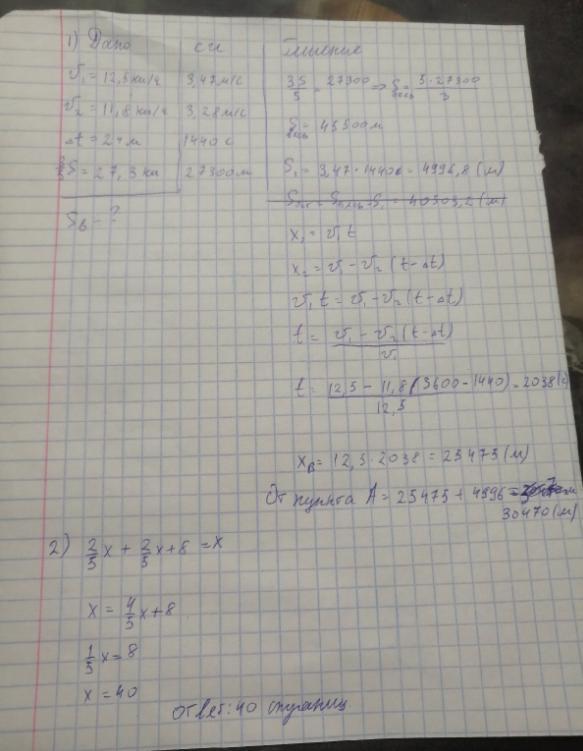 1) Дано СИ Решение
v₁ = 12,5 км/ч 3,47 м/с
v₂ = 11,8 км/ч 3,28 м/с
Δt = 24 м 1440 с
S = 27,3 км 27300 м
S_B - ?
3S/5 = 27300 => S = 5·27300/3
S = 45500 м
S₁ = 3,47·1440 = 4996,8 (м)
= 40503,2 (м)
x₁ = v₁t
x₂ = v₁ - v₂ (t-Δt)
v₁t = v₁ - v₂ (t-Δt)
t = v₁ - v₂ (t-Δt) / v₁
t = 12,5 - 11,8 (3600 - 1440) / 12,5 = 2038 (с)
x_B = 12,5·2038 = 25475 (м)
От пункта A = 25475 + 4996 =
30470 (м)
2) 2/5 x + 2/5 x + 8 = x
x = 4/5 x + 8
1/5 x = 8
x = 40
Ответ: 40 страниц